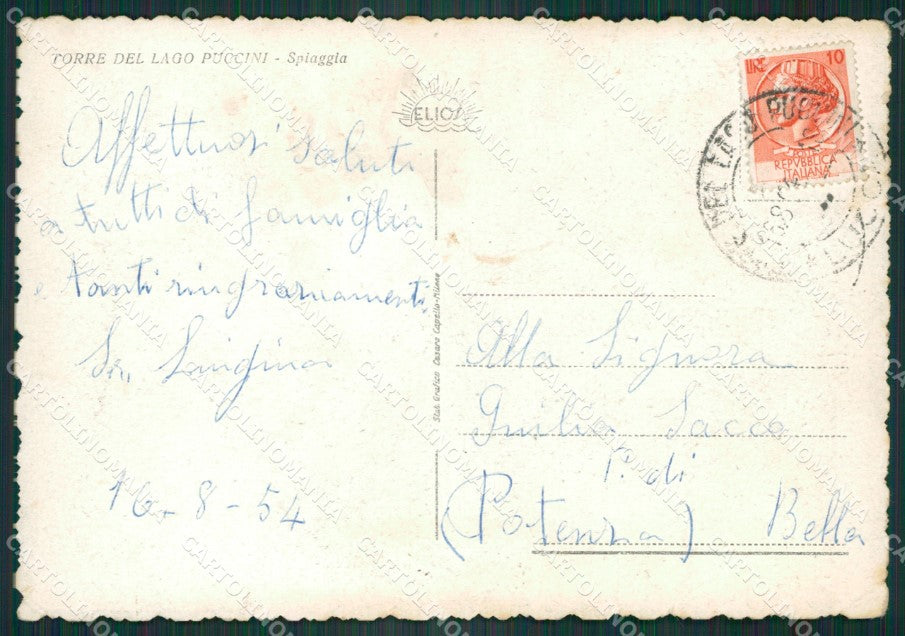 TORRE DEL LAGO PUCCINI - Spiaggia
ELIOS
Affettuosi saluti
a tutti di famiglia
e tanti ringraziamenti
Luigina
16-8-54
Stab. Grafico Cesare Capello-Milano
LIRE 10
POSTE
REPVBBLICA
ITALIANA
Alla Signora
Giulia Sacco
P. di
(Potenza) Bella
CARTOLINOMANIA